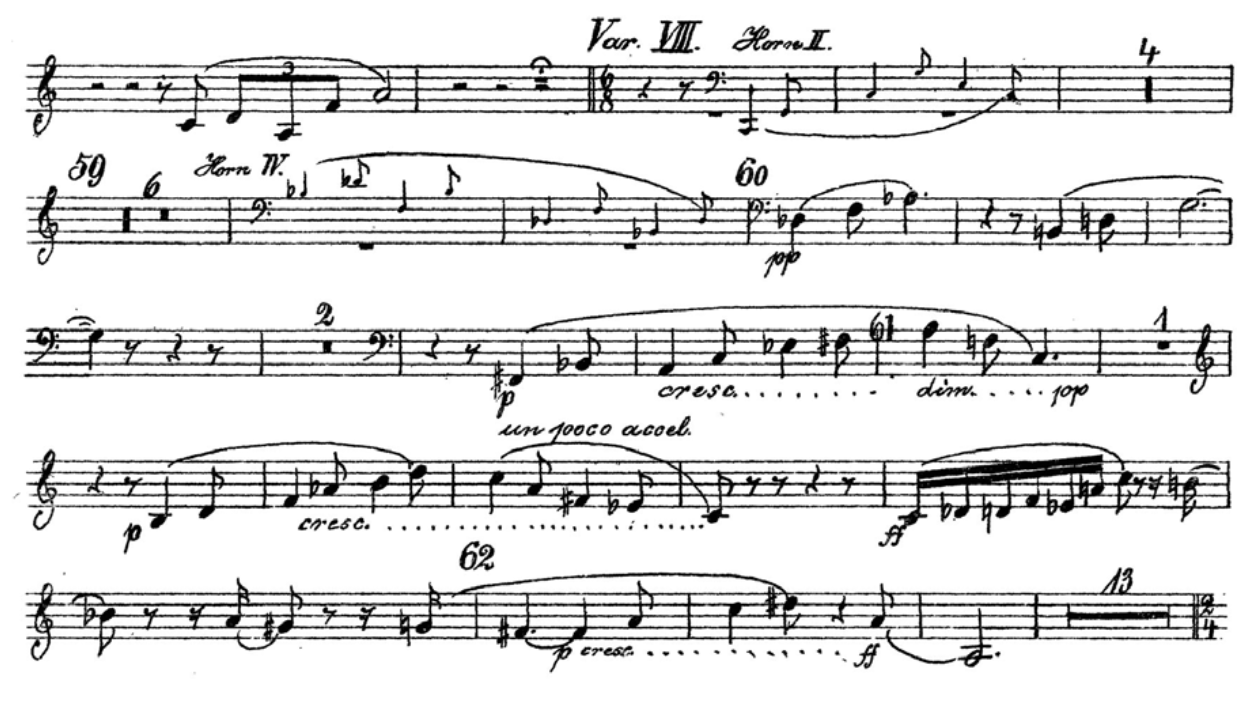 Var. VIII. Horn II.
3
6 8
4
59 6 Horn IV. 60
pp
2 61 1
p cresc. dim. pp
un poco accel.
p cresc. ff
62 13
p cresc. ff
2 4